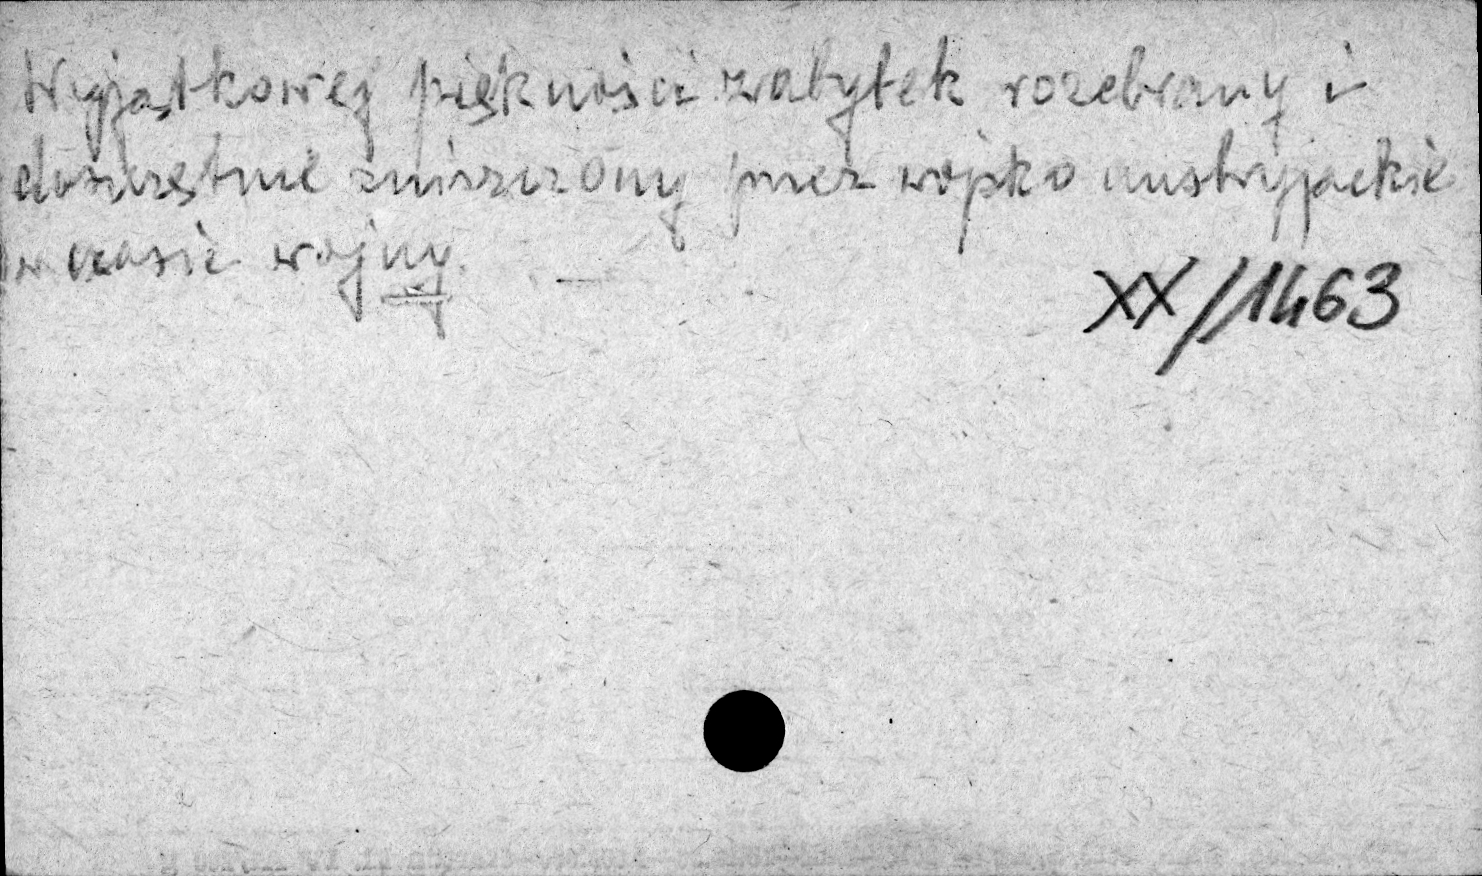 Wyjątkowej piękności zabytek rozebrany i
doszczętnie zniszczony przez wojsko austryjackie
w czasie wojny.
XX/1463